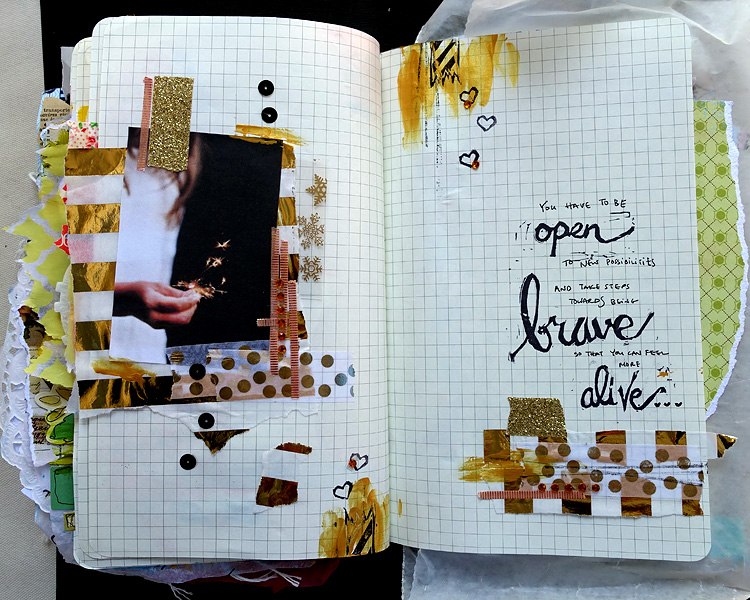 transporte
YOU HAVE TO BE
open
TO NEW POSSIBILISITS
AND TAKE STEPS
TOWARDS BEING
brave
SO THAT YOU CAN FEEL
MORE
alive...